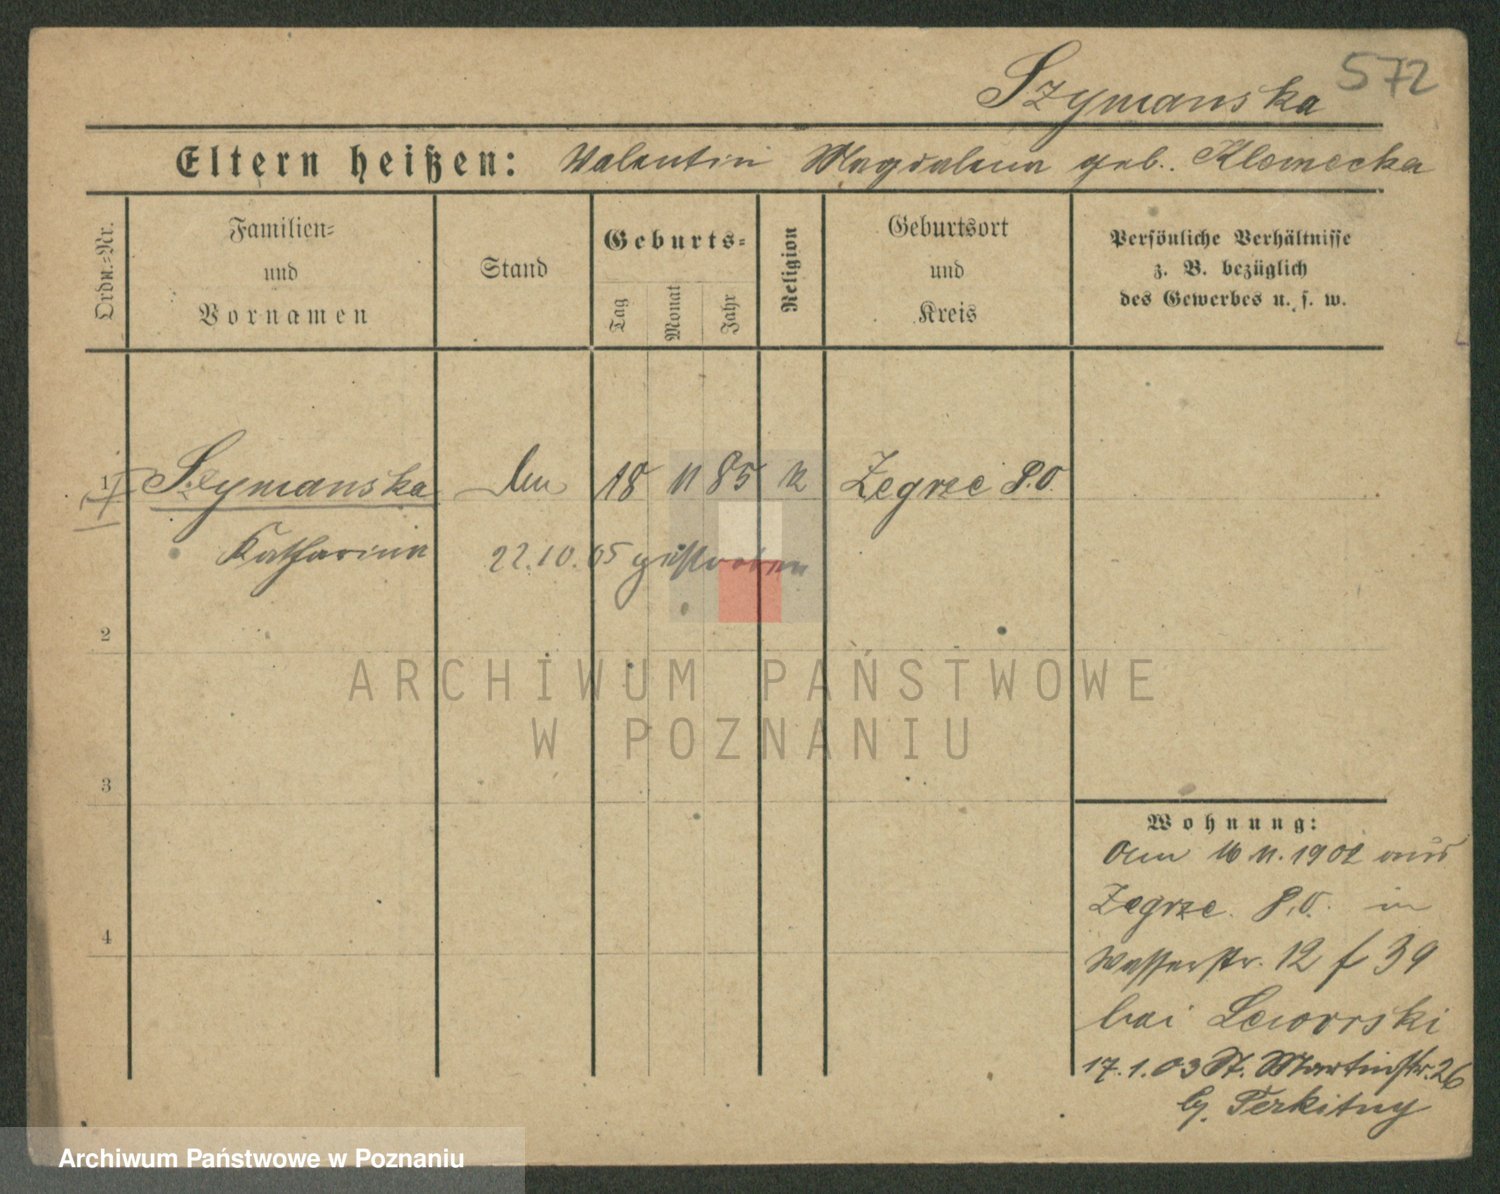 572
Szymanska
Eltern heißen: Valentin Magdalena geb. Klemecka
Ordn.=Nr.
Familien=
und
Vornamen
Stand
Geburts=
Tag
Monat
Jahr
Religion
Geburtsort
und
Kreis
Persönliche Verhältnisse
z. B. bezüglich
des Gewerbes u. s. w.
1 Szymanska 18 11 85 k Zegrze P.O.
Katharina 22.10.05 gestorben
2
ARCHIWUM PAŃSTWOWE
W POZNANIU
3
4
Wohnung:
Am 16 11. 1902 aus
Zegrze. P.O. in
Wasserstr. 12 f 39
bei
17.1.03 St. Martinstr. 26
b. Perkitny
Archiwum Państwowe w Poznaniu